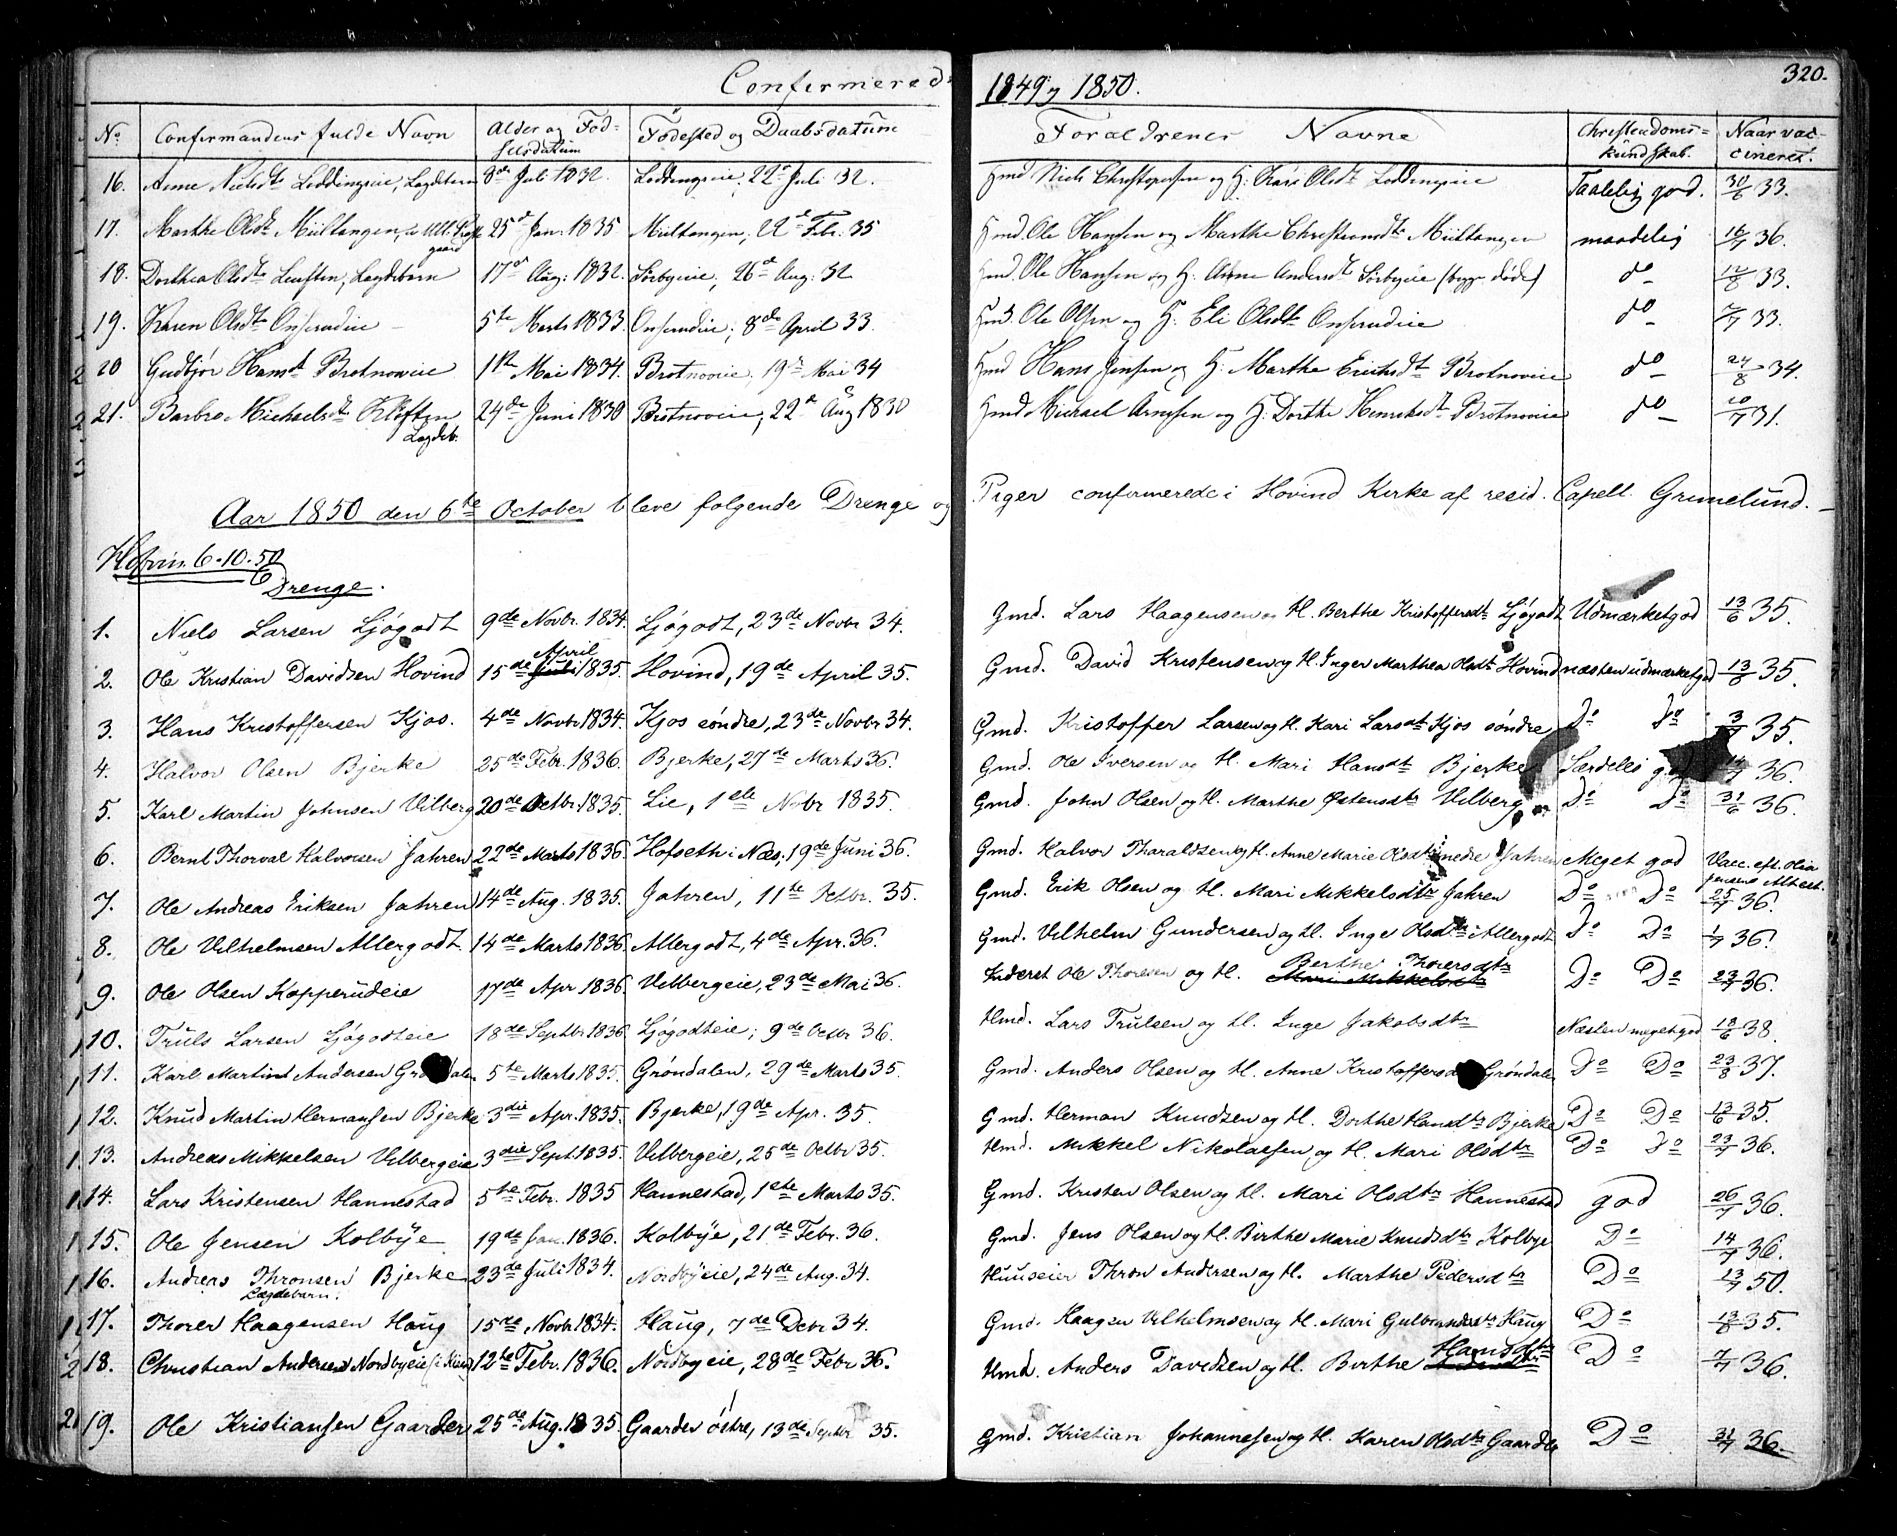 Confirmerede 1849 og 1850. 320.
No. Confirmandens fulde Navn Alder og Fødselsdatum Fødested og Daabsdatum Forældrenes Navne Christendomskundskab. Naar vaccineret.
16. Anne Nielsdt Loddingseie, Lægdebarn 8de Juli 1832. Loddingseie, 22de Juli 32. Hmd Niels Christophersen og H: Kari Olsdt Loddingseie Taalelig god. 30/6 33.
17. Marthe Olsdt Mültangen, 25de Jan: 1835 Mültangen, 22de Febr. 35 Hmd. Ole Hansen og Marthe Mültangen maadelig 16/7 36.
18. Dorthea Olsdt Lægdebarn 17de Aug: 1832. Sörbyeie, 26de Aug: 32 Hmd. Ole Hansen og H: Anne Andersdt Sörbyeie (begge döde) do 12/8 33.
19. Karen Olsdt Onsrudeie 5te Marts 1833. Onsrudeie, 8de April 33. Hmd. Ole Olsen og H: Eli Olsdt Onsrudeie do 33.
20 Gudbjör Hansdt Brotnoveie 1ste Mai 1834. Brotnoveie, 19de Mai 34 Hmd Hans Jensen og H: Marthe Erichsdt Brotnoveie do 24/8 34.
21. Barbro Michaelsdt Kløften Lægdeb. 24de Juni 1830 Brotnoveie, 22de Aug 1830 Hmd Michael Arnesen og H: Dorthe Henriksdt Brotnoveie do 10/7 31.
Aar 1850 den 6te October bleve følgende Drenge og Piger confirmerede i Hovind Kirke af resid. Capell. Grimelund.
Hofvin 6-10-50
Drenge.
1. Niels Larsen Ljøgodt 9de Novbr. 1834. Ljøgodt, 23de Novbr 34. Gmd. Lars Haagensen og H. Berthe Kristoffersdtr Ljøgodt Udmærketgod 13/6 35.
2. Ole Kristian Davidsen Hovind 15de April 1835. Hovind, 19de April 35. Gmd. David Kristensen og H. Inger Marthea Olsdtr Hovind næsten udmærketgod 13/6 35.
3. Hans Kristoffersen Kjos. 4de Novbr 1834. Kjos søndre, 23de Novbr 34. Gmd. Kristoffer Larsen og H. Kari Larsdtr Kjos søndre Do Do 3/7 35.
4. Halvor Olsen Bjerke 25de Febr. 1836. Bjerke, 27de Marts 36. Gmd. Ole Iversen og H. Mari Hansdtr Bjerke Særdeles 36.
5. Karl Martin Johnsen Vilberg 20de Octbr. 1835. Lie, 1ste Nvbr 1835. Gmd. John Olsen og H. Marthe Østensdtr Vilberg Do Do 31/6 36.
6. Bernt Thorval Halvorsen Jahren 22de Marts 1836. Hofseth i Næs, 19de Juni 36. Gmd. Halvor Tharaldsen og H. Anne Marie Olsdtr nedre Jahren Meget god Vacc. eft. Olia Jensens Attest.
7. Ole Andreas Eriksen Jahren 14de Aug. 1835. Jahren, 11te Octbr. 35. Gmd. Erik Olsen og H. Mari Mikkelsdtr Jahren Do Do 25/7 36.
8. Ole Vilhelmsen Allergodt 14de Marts 1836. Allergodt, 4de Apr. 36. Gmd. Vilhelm Gundersen og H. Inge Olsdtr Allergodt Do Do 1/7 36.
9. Ole Olsen Kopperudeie 17de Apr 1836. Vilbergeie, 23de Mai 36. Inderst Ole Thoresen og H. Berthe Thoersdtr Mari Mikkelsdtr Do Do 23/7 36.
10. Truls Larsen Ljøgodteie 18de Septbr. 1836. Ljøgodteie, 9de Octbr 36. Hmd. Lars Trulsen og H. Inge Jakobsdtr Næsten megetgod 18/6 38.
11. Karl Martin Andersen Grøndalen 5te Marts 1835. Grøndalen, 29de Marts 35. Gmd. Anders Olsen og H. Anne Kristoffersdtr Grøndalen Do Do 23/8 37.
12. Knud Martin Hermansen Bjerke 3die Apr. 1835. Bjerke, 19de Apr. 35. Gmd. Herman Knudsen og H. Dorthe Hansdtr Bjerke Do Do 13/6 35.
13. Andreas Mikkelsen Vilbergeie 3die Sept. 1835. Vilbergeie, 25de Octbr 35. Hmd. Mikkel Nikolaisen og H. Mari Olsdtr Do Do 23/7 36.
14. Lars Kristensen Hannestad 5te Febr. 1835 Hannestad, 1ste Marts 35. Gmd. Kristen Olsen og H. Mari Olsdtr Hannestad god 26/7 36.
15. Ole Jensen Kolbye 19de Jan. 1836. Kolbye, 21de Febr. 36. Gmd. Jens Olsen og H. Birthe Marie Knudsdtr Kolbye Do 14/7 36.
16. Andreas Thronsen Bjerke Lægdebarn. 23de Juli 1834. Nordbyeie, 24de Aug. 34. Huuseier Thron Andersen og H. Marthe Pedersdtr Do 13/7 50.
17. Thorer Haagensen Haug 15de Novbr. 1834. Haug, 7de Decbr 34. Gmd. Haagen Vilhelmsen og H. Mari Gulbrandsdtr Haug Do 13/8 35.
18. Christian Andersen Nordbyeie 12te Febr. 1836. Nordbyeie, 28de Febr 36. Hmd. Anders Davidsen og H. Birthe Hansdtr Do 7/7 36.
19. Ole Kristiansen Gaarder 25de Aug. 1835. Gaarder østre, 13de Septbr 35. Gmd. Kristian Johannesen og H. Karen Olsdtr Gaarder Do 31/7 36.